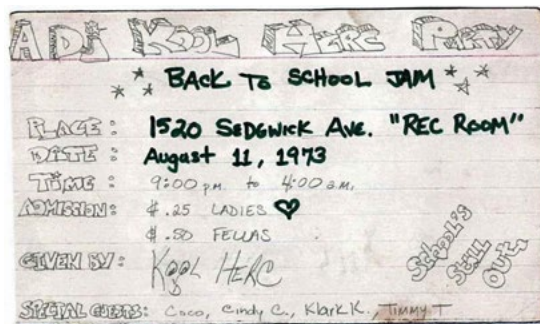 A DJ KOOL HERC PARTY
BACK TO SCHOOL JAM
PLACE: 1520 SEDGWICK AVE. "REC ROOM"
DATE: August 11, 1973
TIME: 9:00 p.m. to 4:00 a.m.
ADMISSION: $.25 LADIES ♥
$.50 FELLAS
GIVEN BY: KOOL HERC
SCHOOL'S
STILL
OUT.
SPECIAL GUESTS: Coco, Cindy C., Klark K., Timmy T